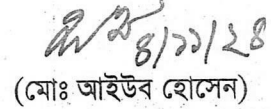 ৪/১১/২৪
(মোঃ আইউব হোসেন)